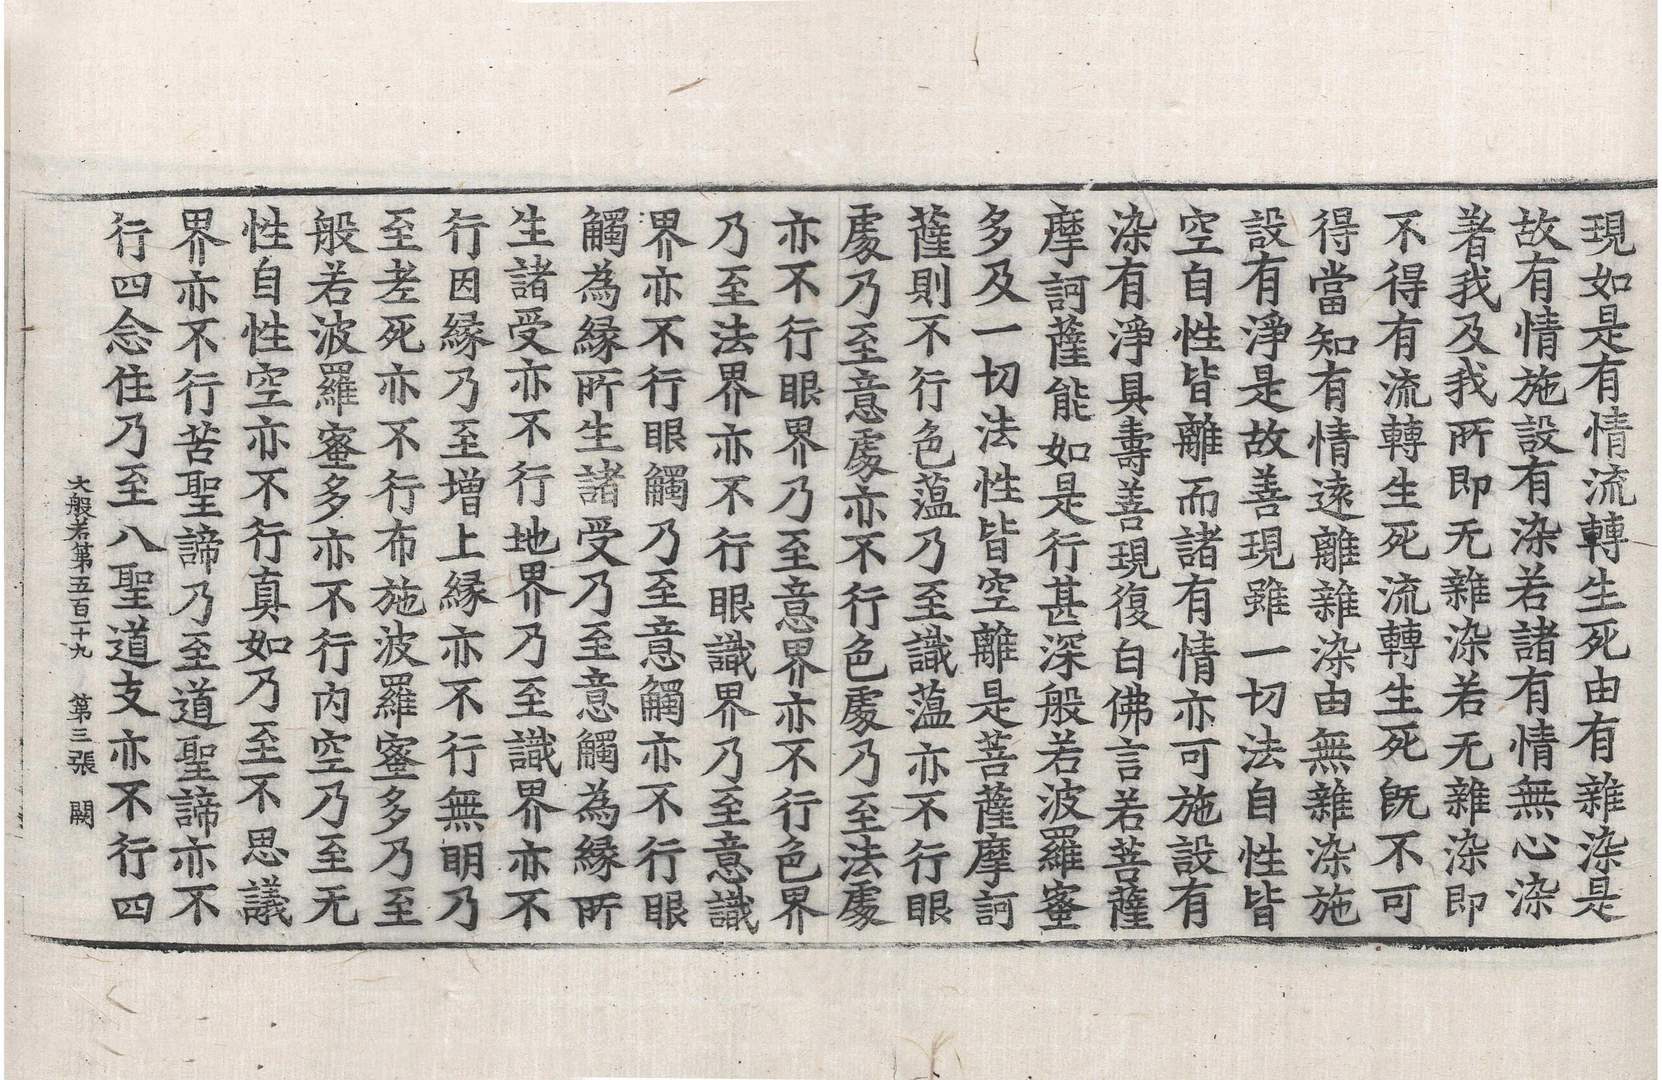 現如是有情流轉生死由有雜染是
故有情施設有染若諸有情無心染
著我及我所即无雜染若无雜染即
不得有流轉生死流轉生死旣不可
得當知有情遠離雜染由無雜染施
設有淨是故善現雖一切法自性皆
空自性皆離而諸有情亦可施設有
染有淨具壽善現復白佛言若菩薩
摩訶薩能如是行甚深般若波羅蜜
多及一切法性皆空離是菩薩摩訶
薩則不行色蘊乃至識蘊亦不行眼
處乃至意處亦不行色處乃至法處
亦不行眼界乃至意界亦不行色界
乃至法界亦不行眼識界乃至意識
界亦不行眼觸乃至意觸亦不行眼
觸為緣所生諸受乃至意觸為緣所
生諸受亦不行地界乃至識界亦不
行因緣乃至增上緣亦不行無明乃
至老死亦不行布施波羅蜜多乃至
般若波羅蜜多亦不行內空乃至无
性自性空亦不行真如乃至不思議
界亦不行苦聖諦乃至道聖諦亦不
行四念住乃至八聖道支亦不行四
大般若第五百二十九　第三張　闕